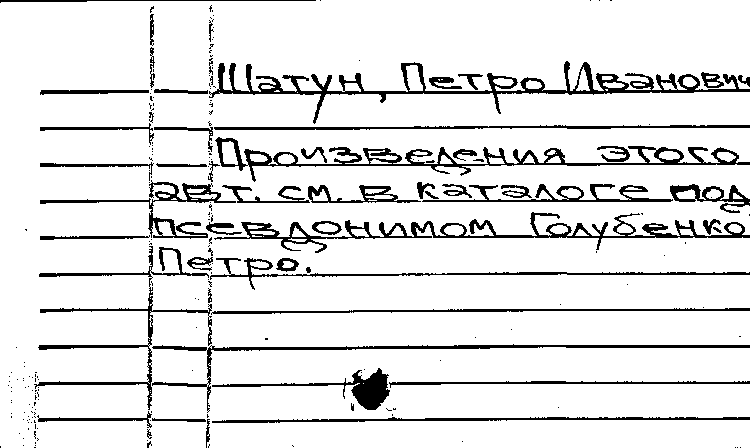 Шатун, Петро Иванович
Произведения этого
авт. см. в каталоге под
псевдонимом Голубенко
Петро.